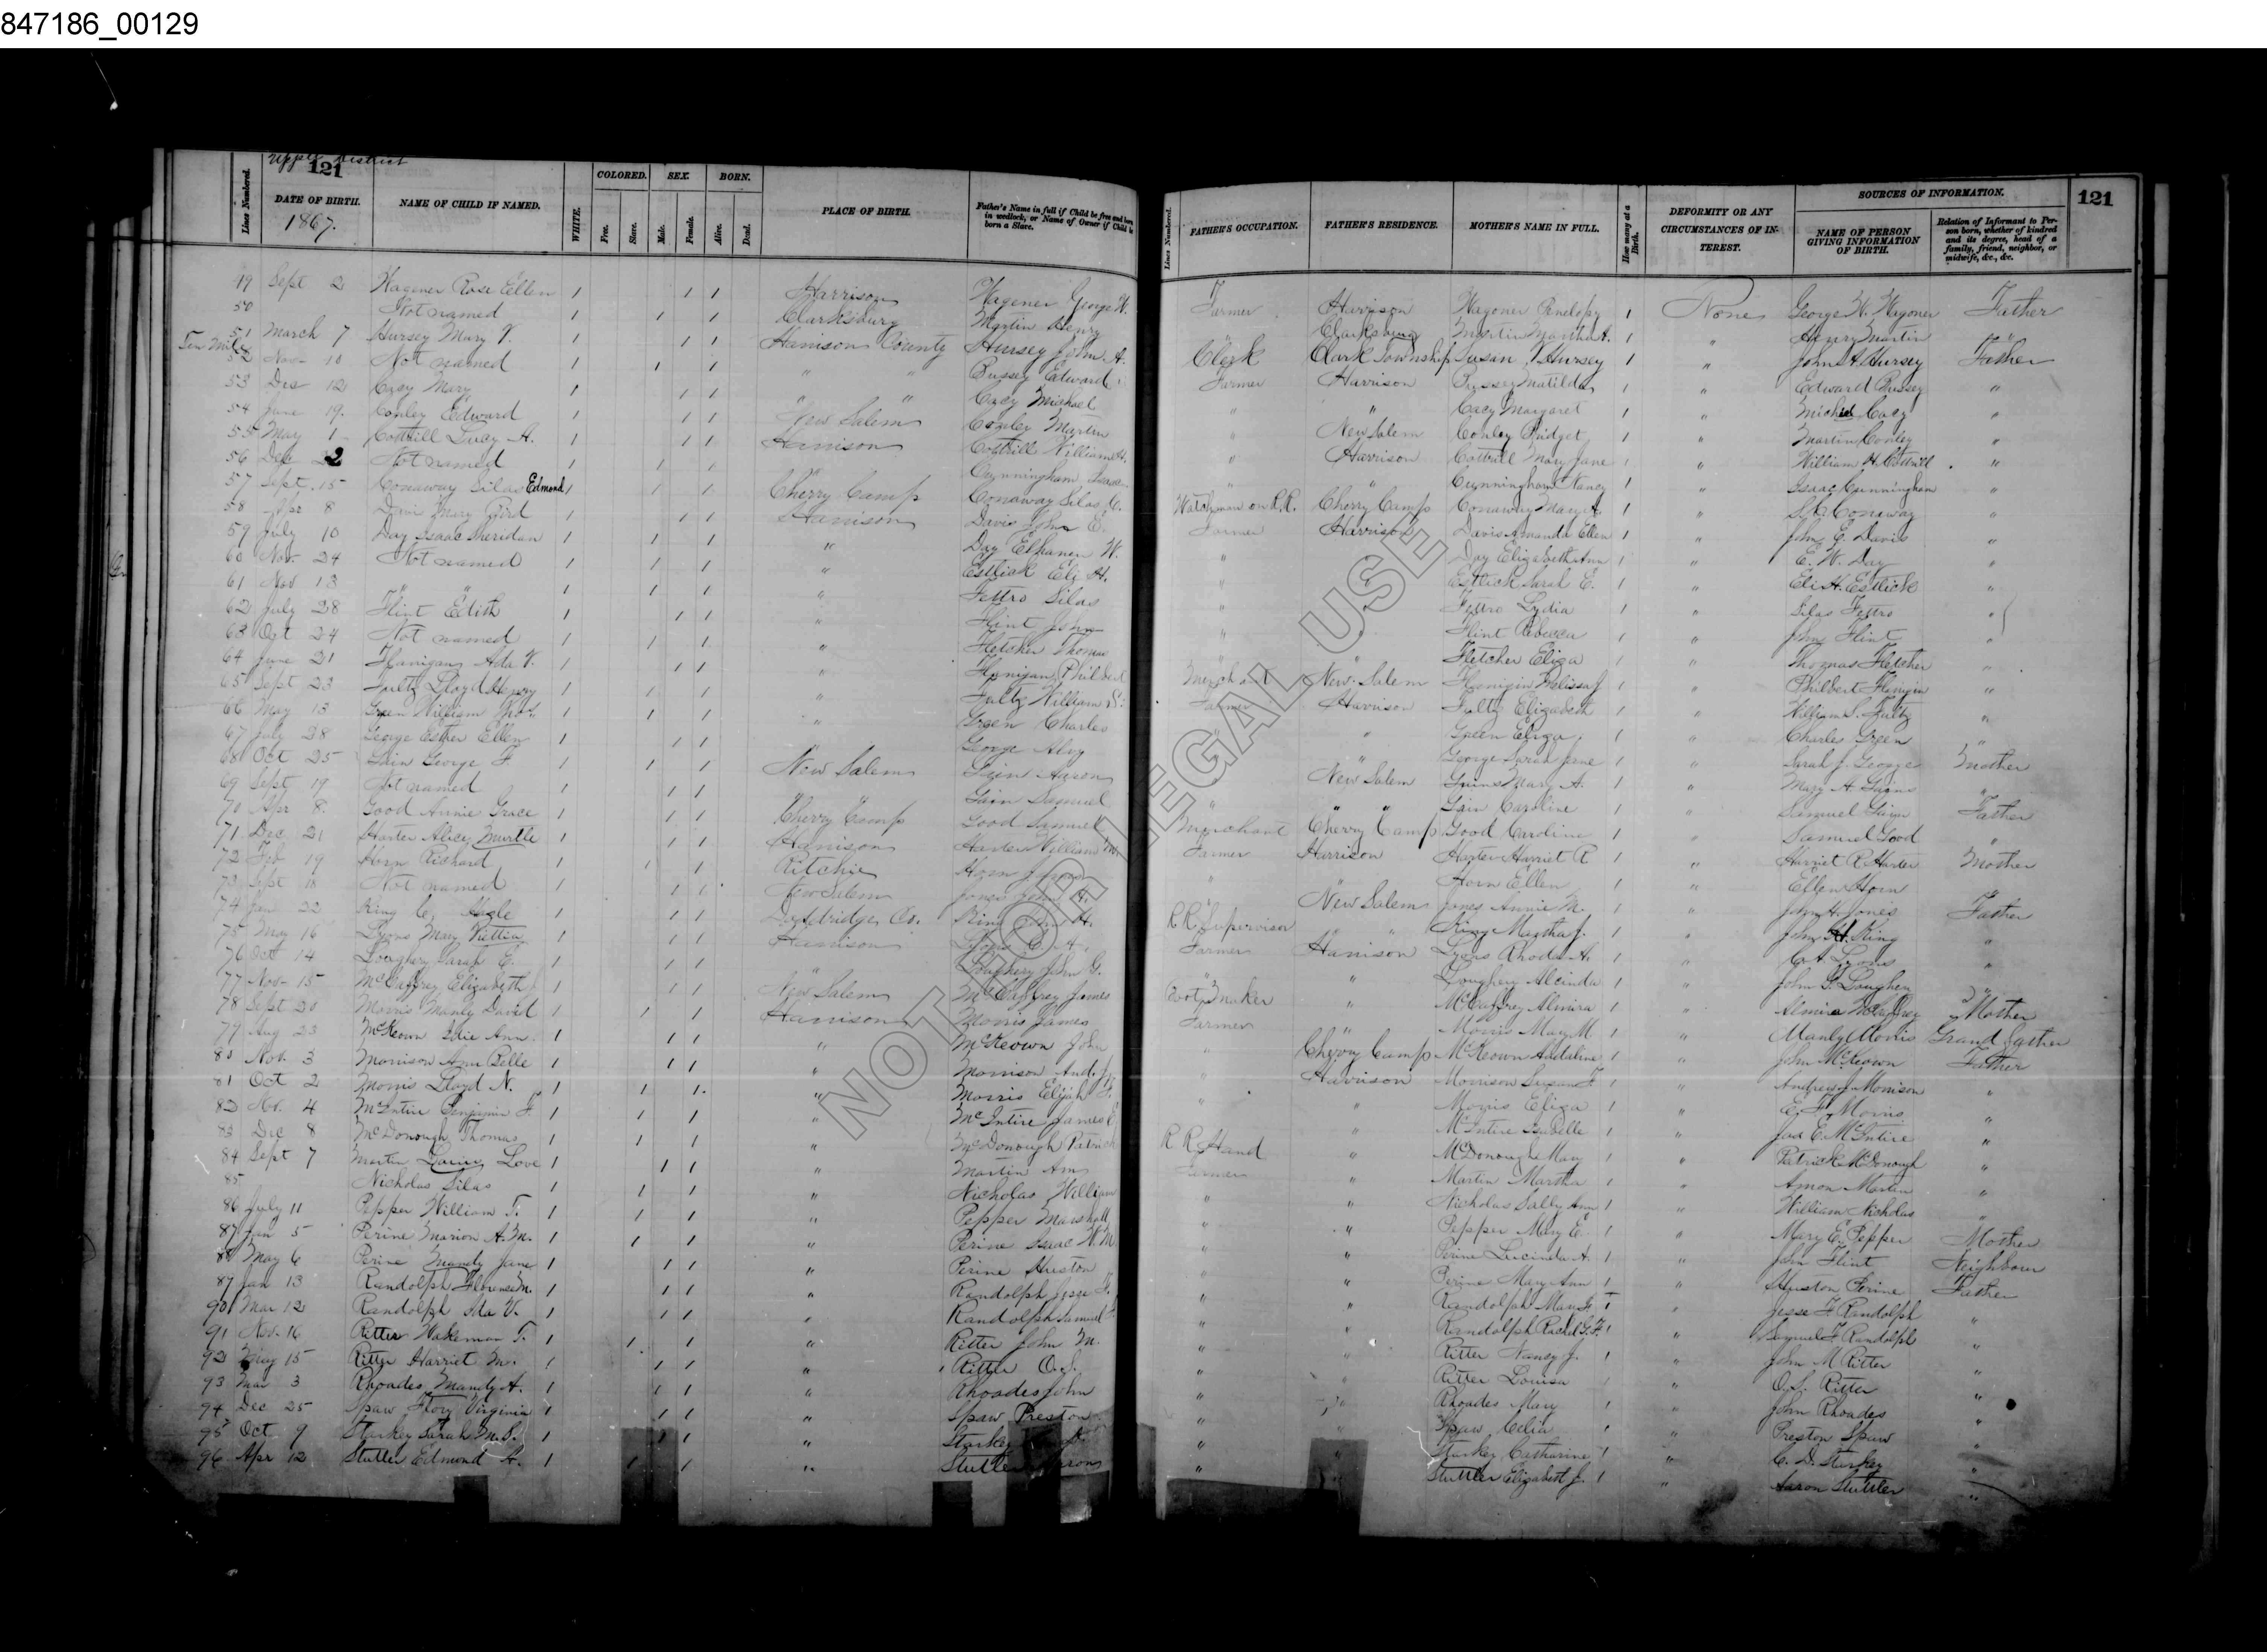 847186_00129
Upper District
121
Lines Numbered.
DATE OF BIRTH.
1867.
NAME OF CHILD IF NAMED.
WHITE.
COLORED.
Free.
Slave.
SEX.
Male.
Female.
BORN.
Alive.
Dead.
PLACE OF BIRTH.
Father's Name in full if Child be free and born in wedlock, or Name of Owner if Child be born a Slave.
Lines Numbered.
FATHER'S OCCUPATION.
FATHER'S RESIDENCE.
MOTHER'S NAME IN FULL.
How many at a Birth.
DEFORMITY OR ANY CIRCUMSTANCES OF INTEREST.
SOURCES OF INFORMATION.
NAME OF PERSON GIVING INFORMATION OF BIRTH.
Relation of Informant to Person born, whether of kindred and its degree, head of a family, friend, neighbor, or midwife, &c., &c.
121
49 Sept 2 Wagener Rose Ellen 1 1 1 Harrison Wagener George W. Farmer Harrison Wagoner Penelopy 1 None George W. Wagoner Father
50 Not named 1 1 1 Clarksburg Martin Henry Clarksburg Martin Martha A. 1 " Henry Martin "
51 March 7 Hursey Mary V. 1 1 1 Harrison County Hursey John A. Clerk Clark Township Susan V Hursey 1 " John A. Hursey Father
Ten Mile
52 Nov- 10 Not named 1 1 1 " " Bussey Edward Farmer Harrison Bussey Matilda 1 " Edward Bussey "
53 Dec 12 Cacy Mary 1 1 1 " " Cacy Michael " " Cacy Margaret 1 " Michael Cacy "
54 June 19. Conley Edward 1 1 1 New Salem Conley Martin " New Salem Conley Bridget 1 " Martin Conley "
55 May 1 Cottrill Lucy A. 1 1 1 Harrison Cottrill William H. " Harrison Cottrill Mary Jane 1 " William H. Cottrill "
56 Dec 2 Not named 1 1 1 " Cunningham Isaac " " Cunningham Nancy 1 " Isaac Cunningham "
57 Sept. 15 Conaway Silas Edmond 1 1 1 Cherry Camp Conaway Silas C. Watchman on R.R. Cherry Camp Conaway Mary A. 1 " S.C. Conaway "
58 Apr 8 Davis Mary Gird 1 1 1 Harrison Davis John E. Farmer Harrison Davis Amanda Ellen 1 " John E. Davis "
59 July 10 Day Isaac Sheridan 1 1 1 " Day Elkanen W. " " Day Elizabeth Ann 1 " E. W. Day "
60 Nov. 24 Not named 1 1 1 " Estlick Eli H. " " Estlick Sarah E. 1 " Eli H. Estlick "
61 Nov 13 " " 1 1 1 " Fettro Silas " " Fettro Lydia 1 " Silas Fettro "
62 July 28 Flint Edith 1 1 1 " Flint John " " Flint Rebecca 1 " John Flint "
63 Oct 24 Not named 1 1 1 " Fletcher Thomas " " Fletcher Eliza 1 " Thomas Fletcher "
64 June 21 Flanigan Ada V. 1 1 1 " Flanigan Philbert Merchant New Salem Flanigin Melissa J 1 " Philbert Flanigin "
65 Sept 23 Fultz Lloyd Henry 1 1 1 " Fultz William S. Farmer Harrison Fultz Elizabeth 1 " William S. Fultz "
66 May 13 Green William 1 1 1 " Green Charles " " Green Eliza 1 " Charles Green "
67 July 28 George Esther Ellen 1 1 1 " George Alvy " " George Sarah Jane 1 " Sarah J. George Mother
68 Oct 25 Gain George F 1 1 1 New Salem Gain Aaron New Salem Gains Mary A. 1 " Mary A Gains "
69 Sept 19 Not named 1 1 1 " " Gain Samuel " " " Gain Caroline 1 " Samuel Gain Father
70 Apr 8. Good Annie Grace 1 1 1 Cherry Camp Good Samuel Merchant Cherry Camp Good Caroline 1 " Samuel Good "
71 Dec 21 Harter Alice Murtle 1 1 1 Harrison Harter William M. Farmer Harrison Harter Harriet R 1 " Harriet R Harter Mother
72 Feb 19 Horn Richard 1 1 1 Ritchie Horn James " " Horn Ellen 1 " Ellen Horn "
73 Sept 18 Not named 1 1 1 New Salem Jones John H. " New Salem Jones Annie M. 1 " John H. Jones Father
74 Jan 22 King 1 1 1 Doddridge Co. King John H. R R Supervisor " " King Martha J. 1 " John H. King "
75 May 16 Lyons Mary 1 1 1 Harrison Lyons C. A. Farmer Harrison Lyons Rhoda A. 1 " C A Lyons "
76 Oct 14 Loughery Sarah E. 1 1 1 " Loughery John G. " " Loughery Alcinda 1 " John G. Loughery "
77 Nov- 15 McCaffrey Elizabeth 1 1 1 New Salem McCaffrey James Boot Maker " McCaffrey Almira 1 " Almira McCaffrey Mother
78 Sept 20 Morris Manly David 1 1 1 Harrison Morris James Farmer " Morris Mary M 1 " Manly Morris Grand father
79 Aug 23 McKeown Idie Ann 1 1 1 " McKeown John " Cherry Camp McKeown Andaline 1 " John McKeown Father
80 Nov. 3 Morrison Ann Belle 1 1 1 " Morrison And. J. " Harrison Morrison Susan F 1 " Andrew J Morrison "
81 Oct 2 Morris Lloyd N. 1 1 1 " Morris Elijah F. " " Morris Eliza 1 " E. F. Morris "
82 Nov. 4 McIntire Benjamin F. 1 1 1 " McIntire James E " " McIntire Isabelle 1 " Jas E. McIntire "
83 Dec 8 McDonough Thomas 1 1 1 " McDonough Patrick R R Hand " McDonough Mary 1 " Patrick McDonough "
84 Sept 7 Martin Love 1 1 1 " Martin Am Farmer " Martin Martha 1 " Amon Martin "
85 Nicholas Silas 1 1 1 " Nicholas William " " Nicholas Sally Ann 1 " William Nicholas "
86 July 11 Pepper William T. 1 1 1 " Pepper Marshall " " Pepper Mary E. 1 " Mary E. Pepper Mother
87 Jan 5 Perine Marion A. M. 1 1 1 " Perine Isaac W. M " " Perine Lucinda A. 1 " John Flint Neighbour
88 May 6 Perine Mandy Jane 1 1 1 " Perine Huston " " Perine Mary Ann 1 " Huston Perine Father
89 Jan 13 Randolph Florence M. 1 1 1 " Randolph Jesse F. " " Randolph Mary F. 1 " Jesse F Randolph "
90 Mar 12 Randolph Ida V. 1 1 1 " Randolph Samuel F " " Randolph Rachel G. F. 1 " Samuel F Randolph "
91 Nov. 16 Ritter Wakeman T. 1 1 1 " Ritter John M. " " Ritter Nancy J. 1 " John M Ritter "
92 May 15 Ritter Harriet M. 1 1 1 " Ritter O. S. " " Ritter Louisa 1 " O. S. Ritter "
93 Mar 3 Rhoades Mandy A. 1 1 1 " Rhoades John " " Rhoades Mary 1 " John Rhoades "
94 Dec 25 Spaw Flory Virginia 1 1 1 " Spaw Preston " " Spaw Celia 1 " Preston Spaw "
95 Oct 9 Starkey Sarah M. S. 1 1 1 " Starkey " " Starkey Catharine 1 " C. D. Starkey "
96 Apr 12 Stutler Edmond A. 1 1 1 " Stutler Aaron " " Stutler Elizabeth J. 1 " Aaron Stutler "
NOT FOR LEGAL USE